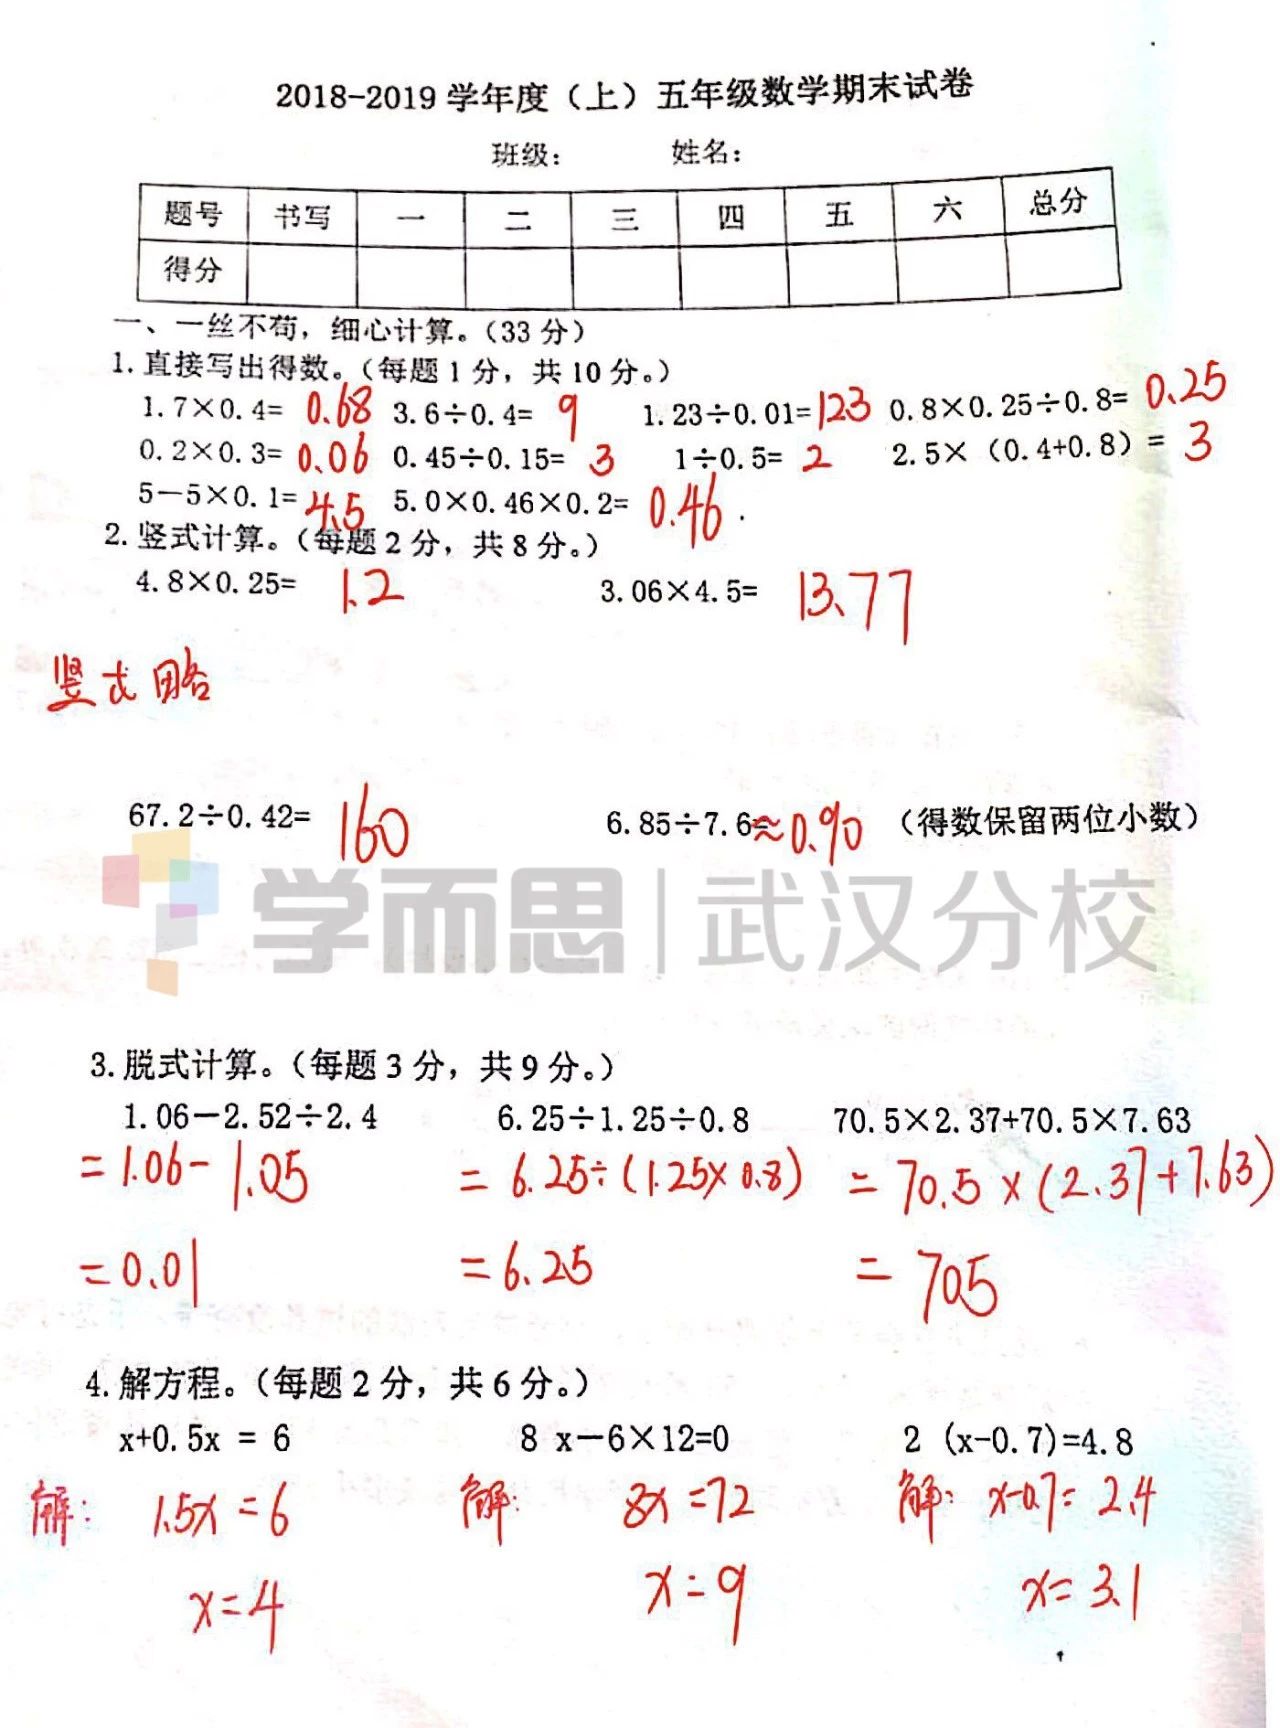 2018-2019学年度（上）五年级数学期末试卷
班级： 姓名：
题号 书写 一 二 三 四 五 六 总分
得分
一、一丝不苟，细心计算。（33分）
1.直接写出得数。（每题1分，共10分。）
1.7×0.4= 0.68 3.6÷0.4= 9 1.23÷0.01= 123 0.8×0.25÷0.8= 0.25
0.2×0.3= 0.06 0.45÷0.15= 3 1÷0.5= 2 2.5×（0.4+0.8）= 3
5－5×0.1= 4.5 5.0×0.46×0.2= 0.46
2.竖式计算。（每题2分，共8分。）
4.8×0.25= 1.2 3.06×4.5= 13.77
竖式略
67.2÷0.42= 160 6.85÷7.6≈0.90 （得数保留两位小数）
学而思|武汉分校
3.脱式计算。（每题3分，共9分。）
1.06－2.52÷2.4 6.25÷1.25÷0.8 70.5×2.37+70.5×7.63
=1.06-1.05 =6.25÷(1.25×0.8) =70.5×(2.37+7.63)
=0.01 =6.25 =705
4.解方程。（每题2分，共6分。）
x+0.5x = 6 8 x－6×12=0 2 (x-0.7)=4.8
解: 1.5x=6 解: 8x=72 解: x-0.7=2.4
x=4 x=9 x=3.1